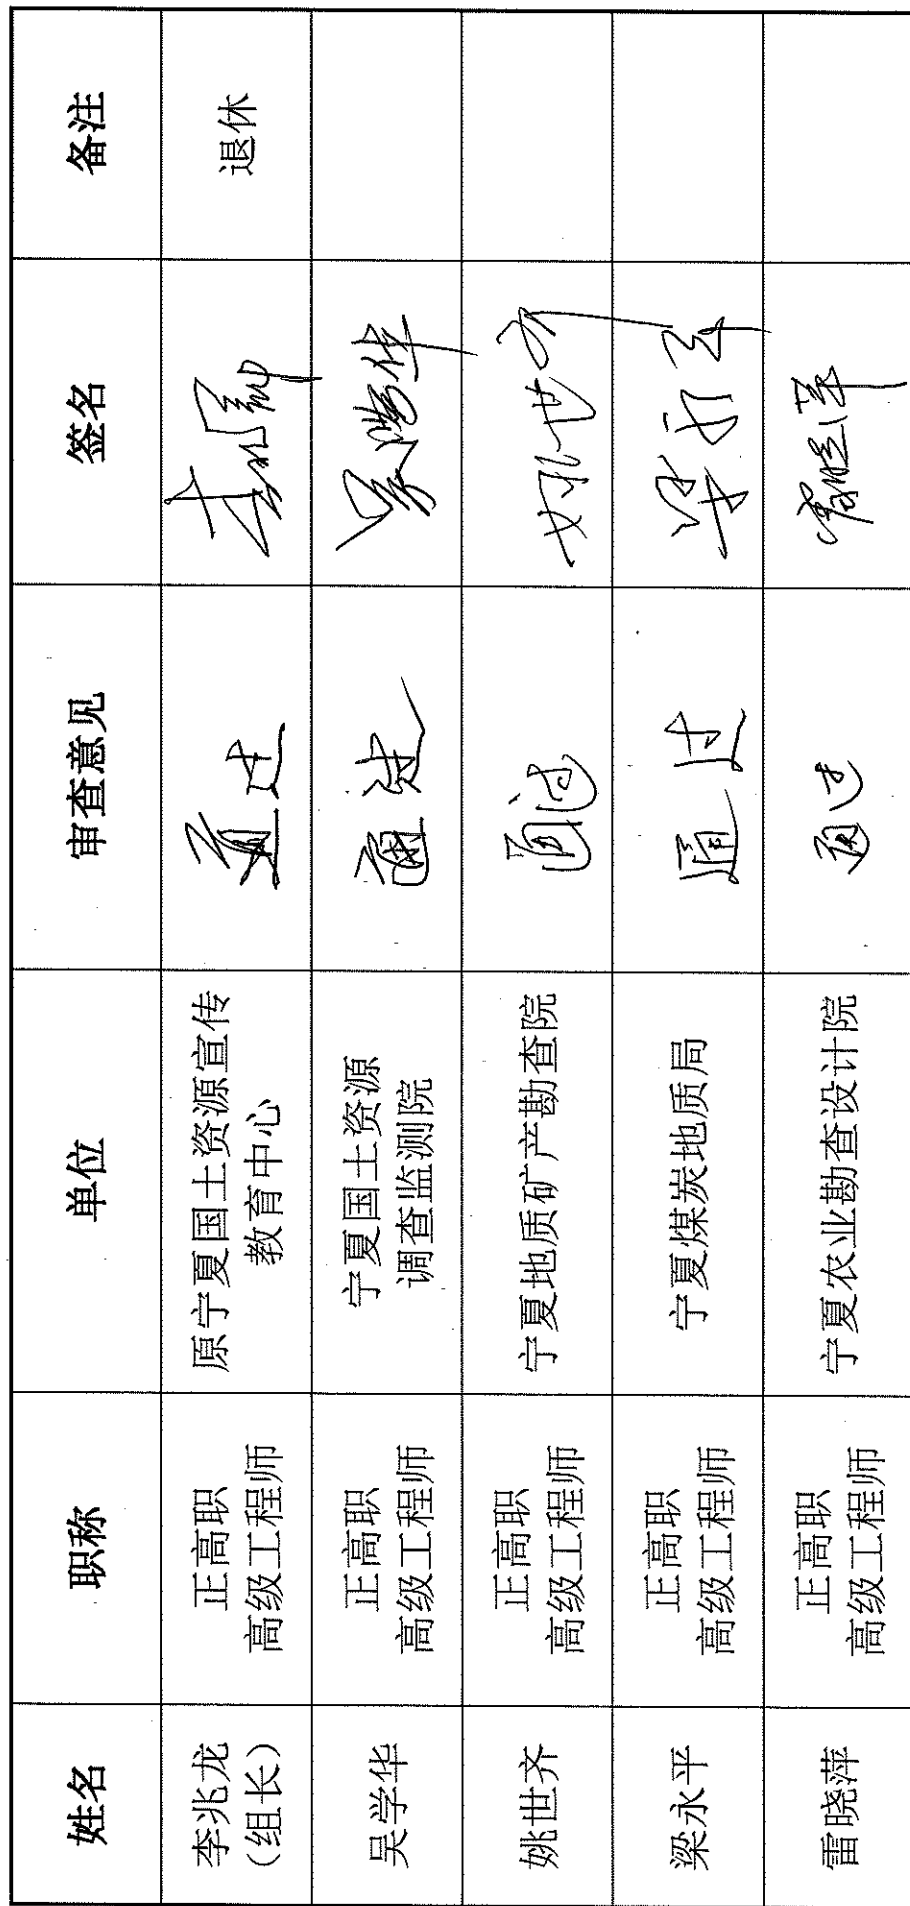 姓名 职称 单位 审查意见 签名 备注
李兆龙
（组长）
正高职
高级工程师
原宁夏国土资源宣传
教育中心
通过
李兆龙
退休
吴学华
正高职
高级工程师
宁夏国土资源
调查监测院
通过
吴学华
姚世齐
正高职
高级工程师
宁夏地质矿产勘查院
通过
姚世齐
梁永平
正高职
高级工程师
宁夏煤炭地质局
通过
梁永平
雷晓萍
正高职
高级工程师
宁夏农业勘查设计院
通过
雷晓萍